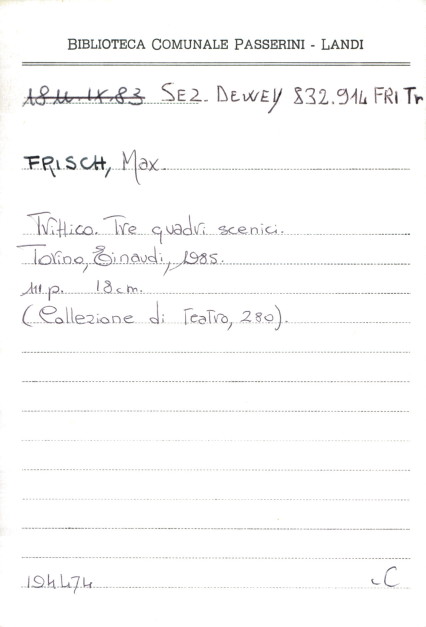 BIBLIOTECA COMUNALE PASSERINI - LANDI
SEZ. DEWEY 832.914 FRI Tr
FRISCH, Max.
Trittico. Tre quadri scenici.
Torino, Einaudi, 1985.
111 p. 18 cm.
(Collezione di Teatro, 280).
194474
C